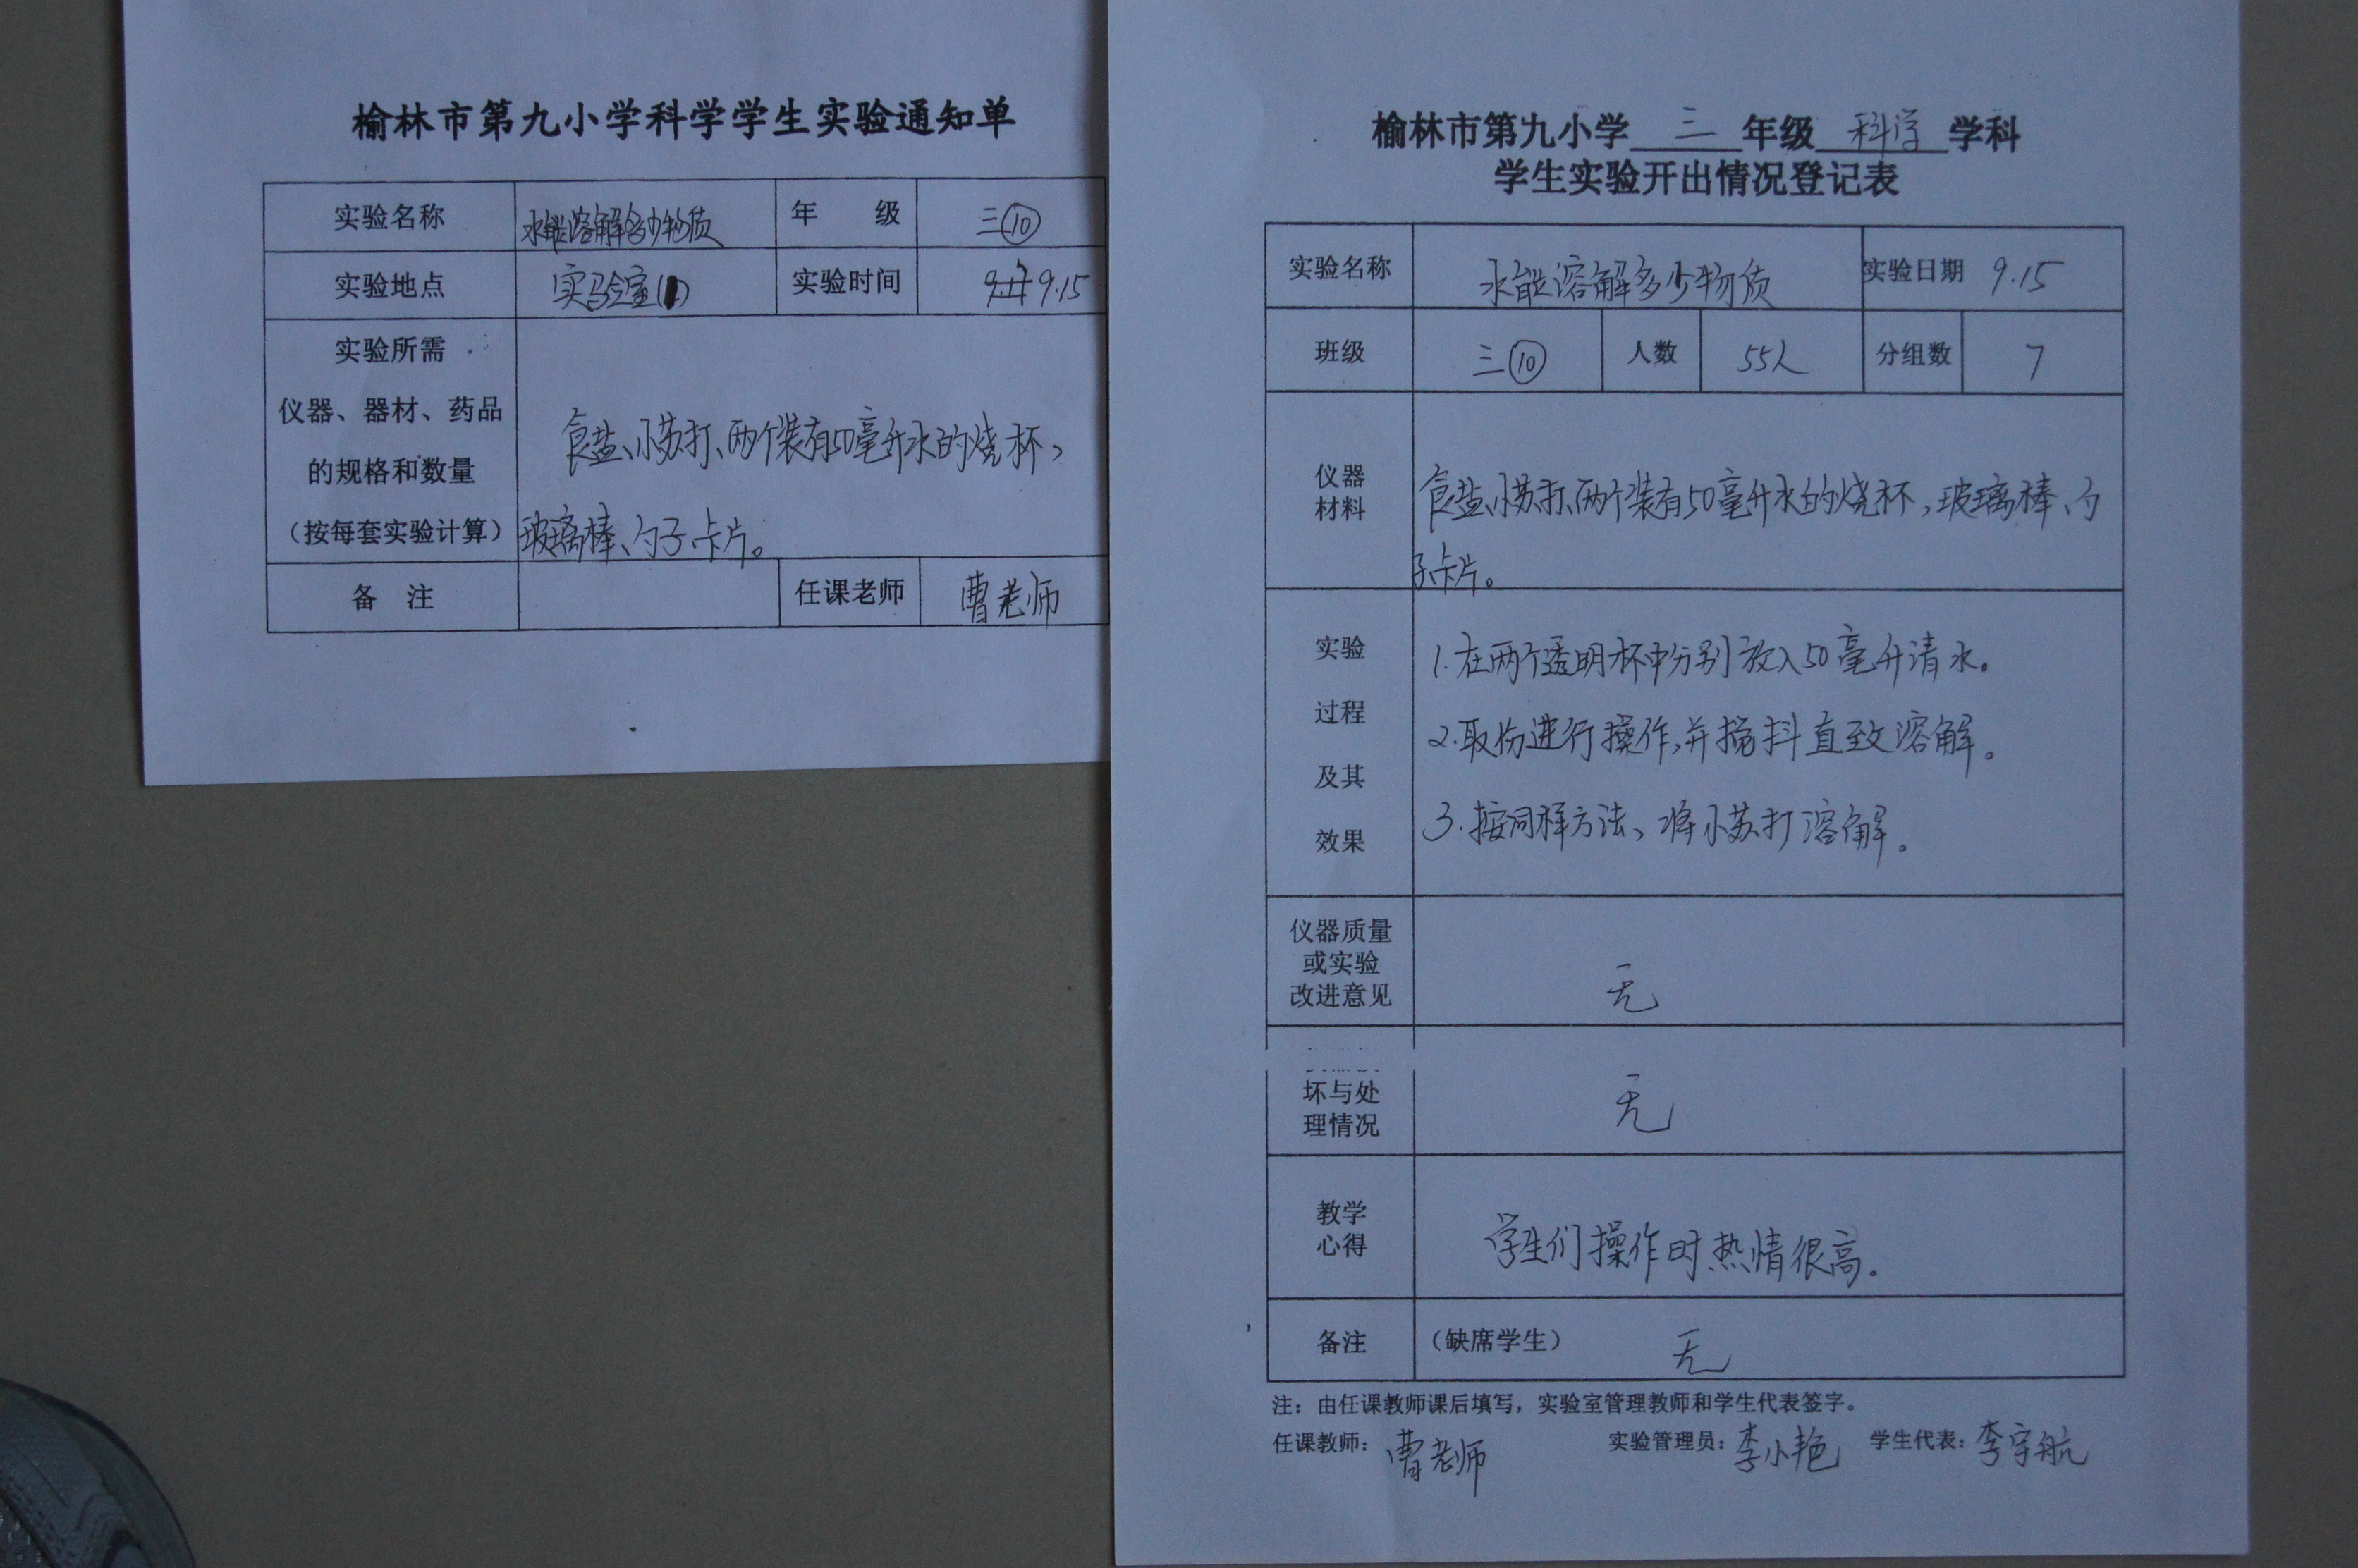 榆林市第九小学科学学生实验通知单
实验名称 水能溶解多少物质 年 级 三⑩
实验地点 实验室(1) 实验时间 9.15
实验所需
仪器、器材、药品
的规格和数量
（按每套实验计算）
食盐、小苏打、两个装有50毫升水的烧杯，
玻璃棒、勺子、卡片。
备 注 任课老师 曹老师
榆林市第九小学 三 年级 科学 学科
学生实验开出情况登记表
实验名称 水能溶解多少物质 实验日期 9.15
班级 三⑩ 人数 55人 分组数 7
仪器
材料
食盐、小苏打、两个装有50毫升水的烧杯，玻璃棒、勺
子、卡片。
实验
过程
及其
效果
1.在两个透明杯中分别放入50毫升清水。
2.取份进行操作,并搅抖直致溶解。
3.按同样方法、将小苏打溶解。
仪器质量
或实验
改进意见
无
坏与处
理情况
无
教学
心得
学生们操作时热情很高。
备注 （缺席学生） 无
注：由任课教师课后填写，实验室管理教师和学生代表签字。
任课教师：曹老师 实验管理员：李小艳 学生代表：李宇航